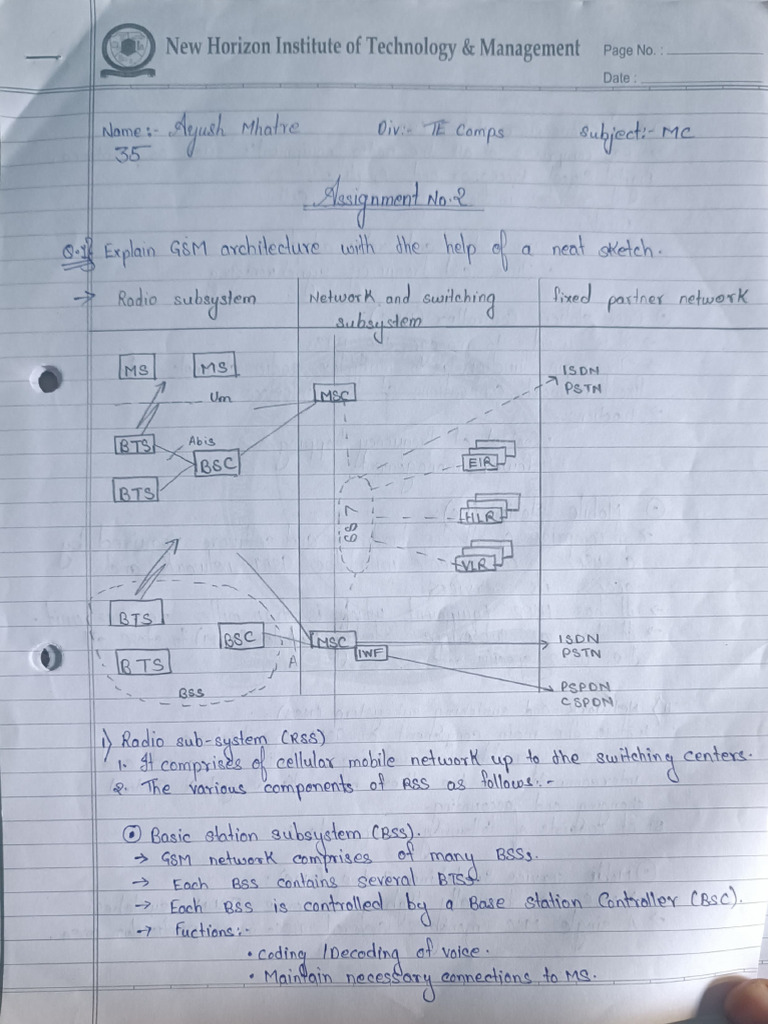 New Horizon Institute of Technology & Management
Page No. :
Date :
Name:- Ayush Mhatre Div:- TE Comps Subject:- MC
35
Assignment No.2
Q.1} Explain GSM architecture with the help of a neat sketch.
→ Radio subsystem Network and switching subsystem fixed partner network
MS MS
Um
MSC
ISDN
PSTN
BTS
Abis
BSC
BTS
EIR
SS7
HLR
VLR
BTS
BSC
BTS
BSS
A
MSC
IWF
ISDN
PSTN
PSPDN
CSPDN
i) Radio sub-system (RSS)
1. It comprises of cellular mobile network up to the switching centers.
2. The various components of RSS as follows:-
Basic station subsystem (BSS).
→ GSM network comprises of many BSSs.
→ Each BSS contains several BTSs.
→ Each BSS is controlled by a Base Station Controller (BSC).
→ Fuctions:-
• Coding /Decoding of voice.
• Maintain necessary connections to MS.